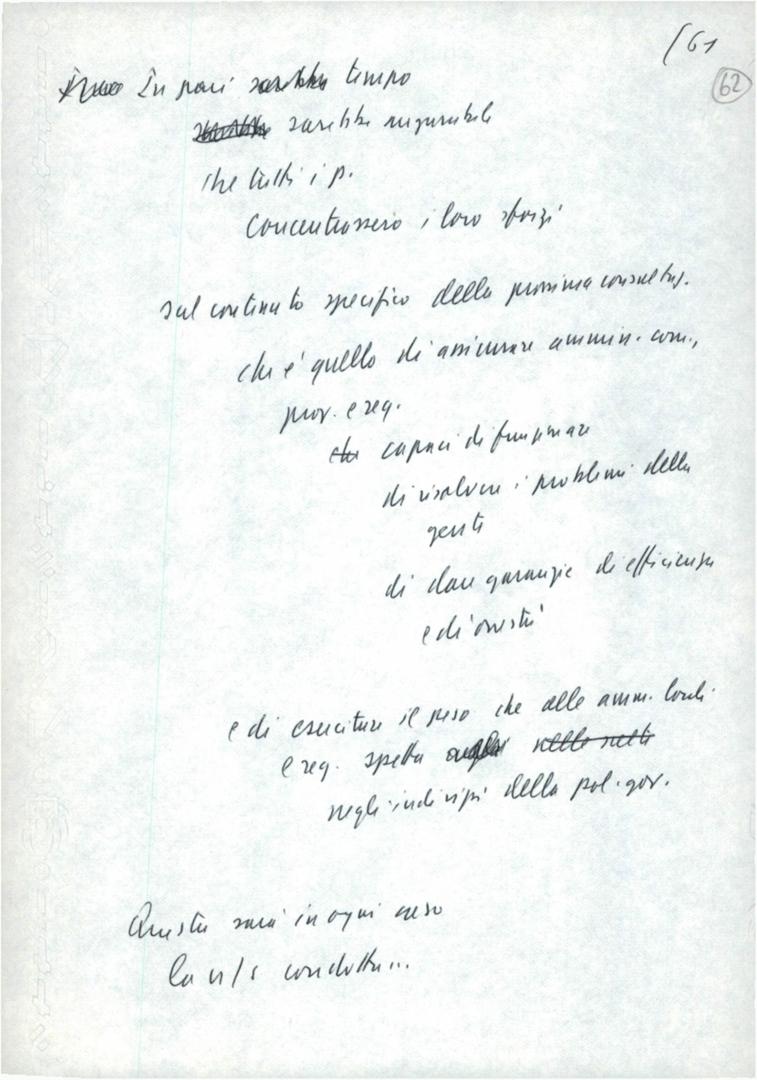 (61
62
In pari tempo
sarebbe augurabile
che tutti i p.
concentrassero i loro sforzi
sul contenuto specifico della prossima consultaz.
che è quello di assicurare ammin. com.,
prov. e reg.
che capaci di funzionare
di risolvere i problemi della
gente
di dare garanzie di efficienza
e di onestà
e di esercitare il peso che alle amm. locali
e reg. spetta nelle scelte
negli indirizzi della pol. gov.
Questa sarà in ogni caso
la n/s condotta...